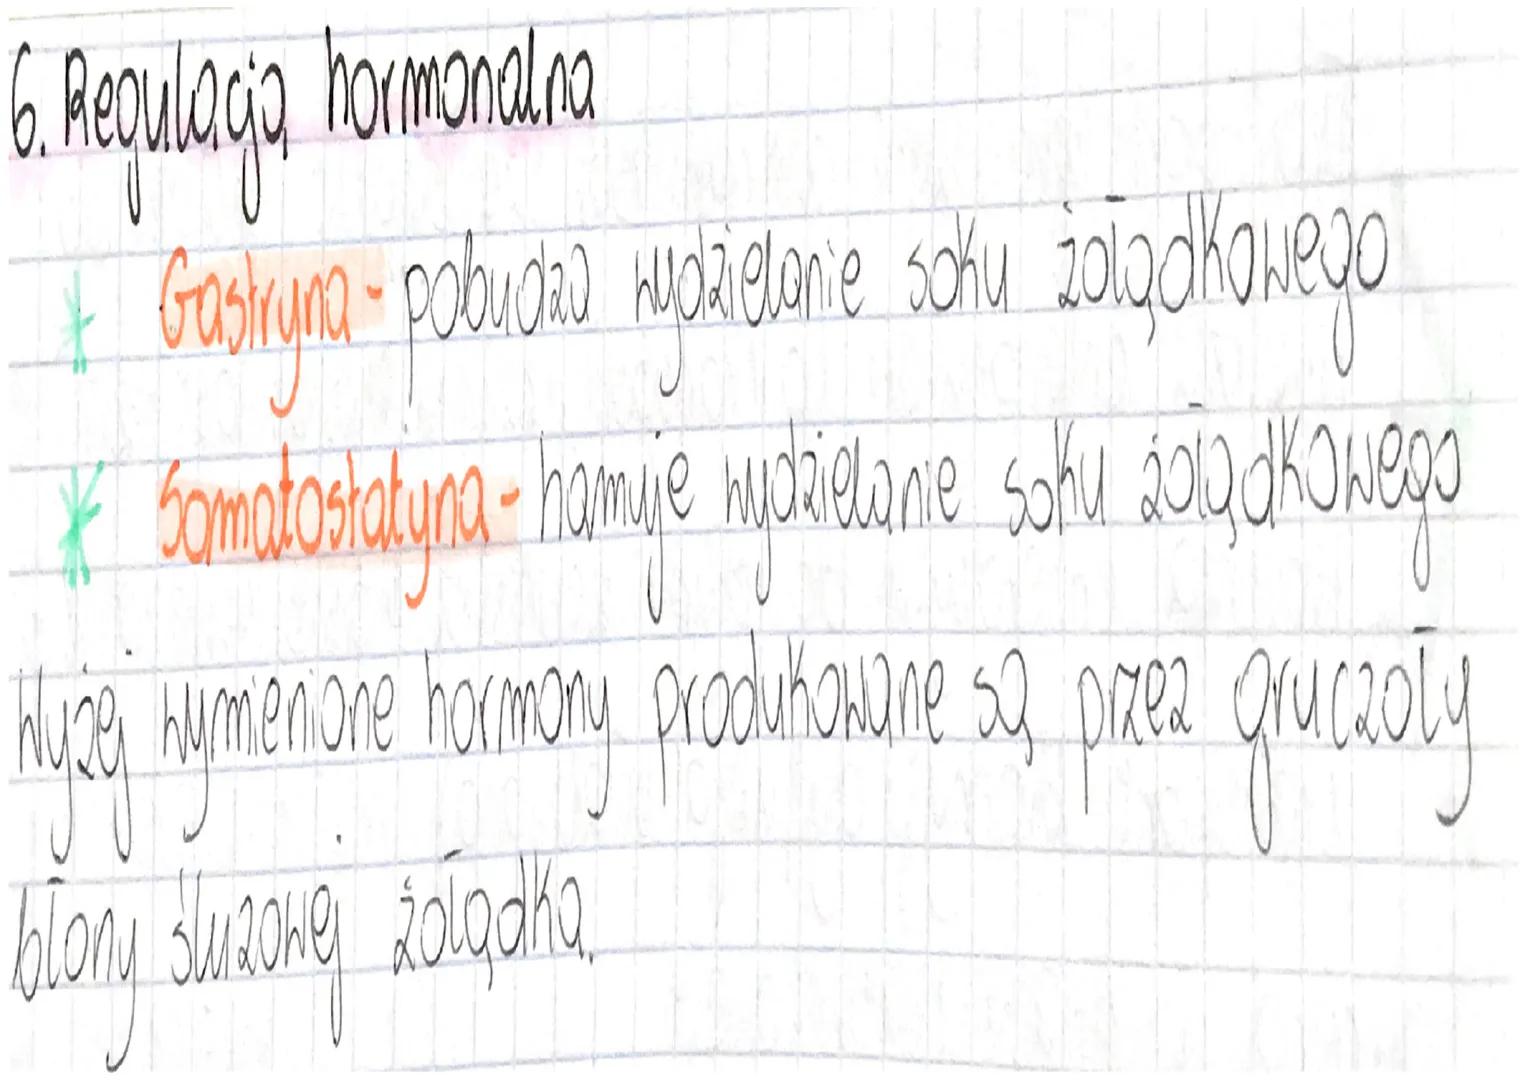 6. Regulacja hormonalna
* Gastryna - pobudza wydzielanie soku żołądkowego
* Somatostatyna - hamuje wydzielanie soku żołądkowego
Wyżej wymienione hormony produkowane są przez gruczoły
błony śluzowej żołądka.